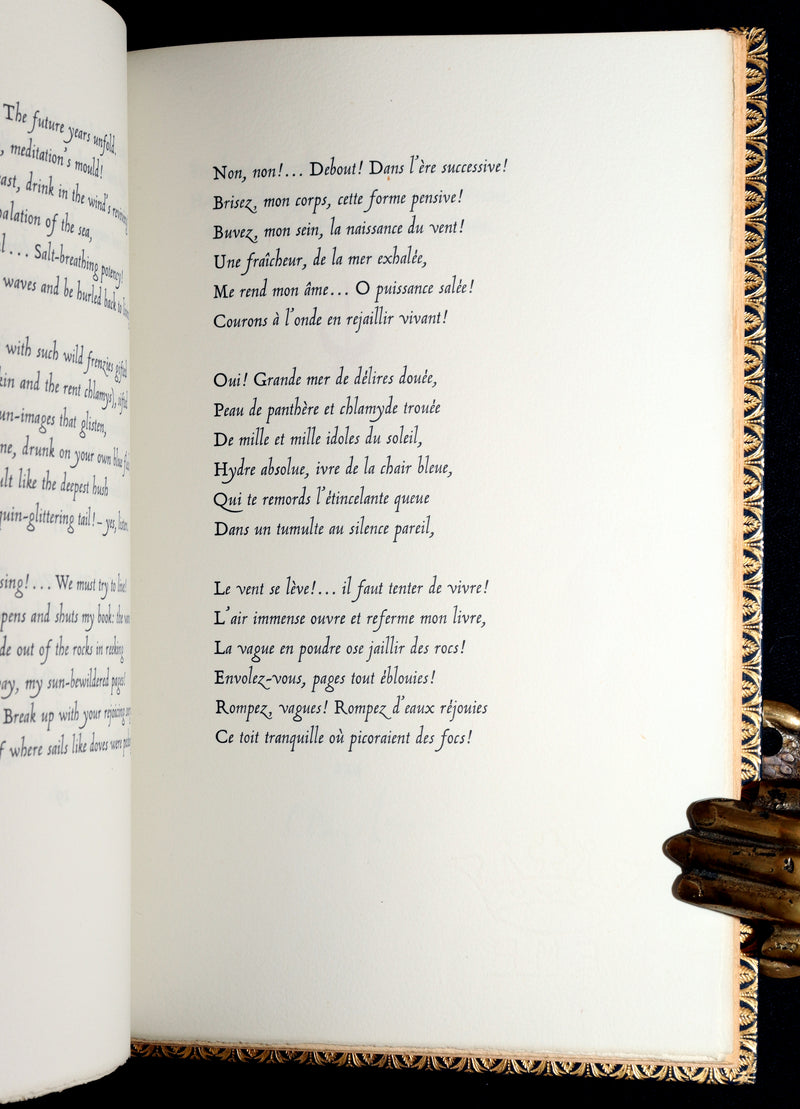 The future years unfold,
, meditation's mould!
ast, drink in the wind's reviving
alation of the sea,
l... Salt-breathing potency!
waves and be hurled back to
with such wild frenzies gifted
kin and the rent chlamys), sifted
un-images that glisten,
ne, drunk on your own blue
ult like the deepest hush
quin-glittering tail! – yes, listen,
sing!... We must try to live!
pens and shuts my book: the
de out of the rocks in reeking
ay, my sun-bewildered pages!
Break up with your rejoicing
f where sails like doves were
Non, non!... Debout! Dans l'ère successive!
Brisez, mon corps, cette forme pensive!
Buvez, mon sein, la naissance du vent!
Une fraîcheur, de la mer exhalée,
Me rend mon âme... O puissance salée!
Courons à l'onde en rejaillir vivant!
Oui! Grande mer de délires douée,
Peau de panthère et chlamyde trouée
De mille et mille idoles du soleil,
Hydre absolue, ivre de la chair bleue,
Qui te remords l'étincelante queue
Dans un tumulte au silence pareil,
Le vent se lève!... il faut tenter de vivre!
L'air immense ouvre et referme mon livre,
La vague en poudre ose jaillir des rocs!
Envolez-vous, pages tout éblouies!
Rompez, vagues! Rompez d'eaux réjouies
Ce toit tranquille où picoraient des focs!